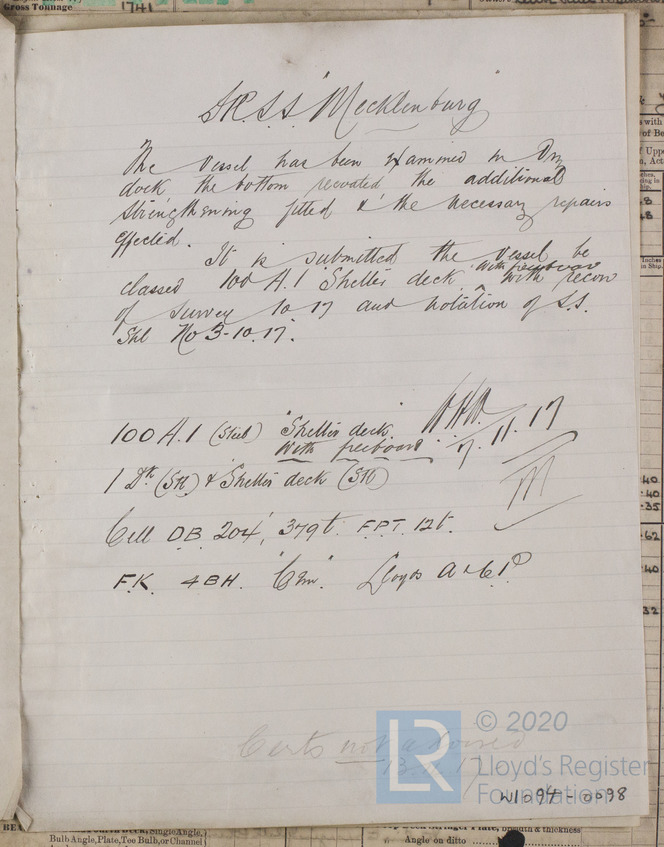 Gross Tonnage
1741
S.S. "Mecklenburg"
The Vessel has been examined in Dry
dock, the bottom recoated the additional
strengthening fitted & the necessary repairs
effected.
It is submitted the Vessel be
with freeboard
classed 100 A.1 "Shelter deck" with record
of Survey 10.17 and notation of S.S.
No 3-10.17.
100 A.1 (Steel) "Shelter deck
with freeboard"
7.11.17
1 Dk (Stl) & Shelter deck (Stl)
Cell DB 204', 379t. F.P.T. 12t.
F.K. 4BH. "Cem" Lloyds A & C P
Certs not
13. 17
LR
© 2020
Lloyd's Register
Foundation
W1094-0098
Bulb Angle, Plate, Tee Bulb, or Channel
Angle on ditto